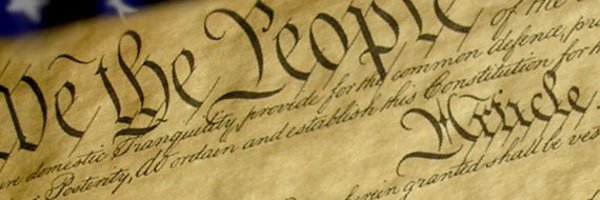 We the People of the
insure domestic Tranquility, provide for the common defence, pro
Posterity, do ordain and establish this Constitution for
Article
herein granted shall be ves